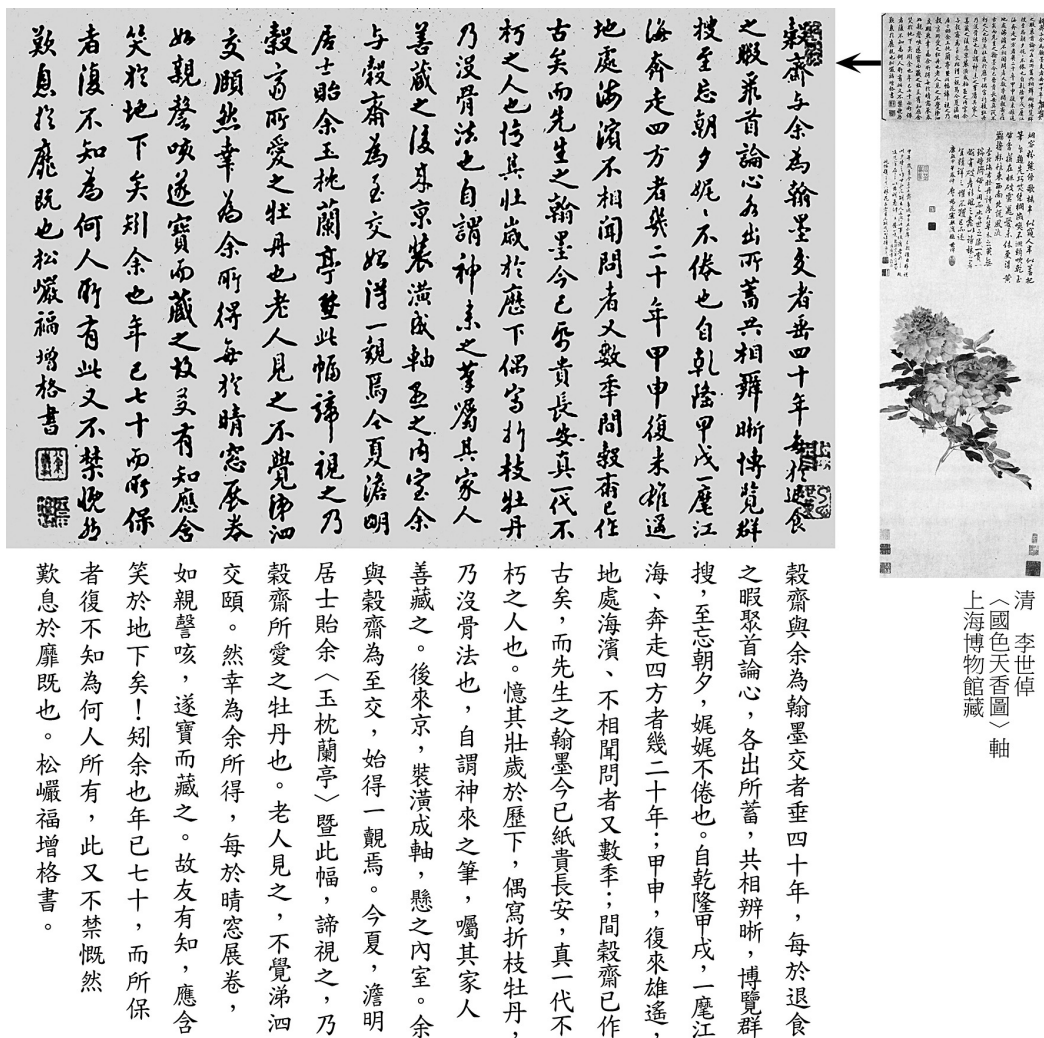 穀齋与余為翰墨交者垂四十年每於退食
之暇聚首論心各出所蓄共相辨晰博覽群
搜至忘朝夕娓々不倦也自乾隆甲戌一麾江
海奔走四方者幾二十年甲申復来雄遥
地處海濱不相聞問者又數季間穀齋已作
古矣而先生之翰墨今已帋貴長安真一代不
朽之人也憶其壯歲於歷下偶寫折枝牡丹
乃沒骨法也自謂神来之筆囑其家人
善藏之後来京裝潢成軸懸之内室余
与穀齋為至交始得一覩焉今夏澹明
居士貽余玉枕蘭亭暨此幅諦視之乃
穀齋所愛之牡丹也老人見之不覺涕泗
交頤然幸為余所得每於晴窓展卷
如親謦咳遂寶而藏之故友有知應含
笑於地下矣矧余也年已七十而所保
者復不知為何人所有此又不禁慨然
歎息於靡既也松巗福增格書
穀齋與余為翰墨交者垂四十年，每於退食
之暇聚首論心，各出所蓄，共相辨晰，博覽群
搜，至忘朝夕，娓娓不倦也。自乾隆甲戌，一麾江
海、奔走四方者幾二十年；甲申，復來雄遙，
地處海濱、不相聞問者又數季；間穀齋已作
古矣，而先生之翰墨今已紙貴長安，真一代不
朽之人也。憶其壯歲於歷下，偶寫折枝牡丹，
乃沒骨法也，自謂神來之筆，囑其家人
善藏之。後來京，裝潢成軸，懸之內室。余
與穀齋為至交，始得一覩焉。今夏，澹明
居士貽余〈玉枕蘭亭〉暨此幅，諦視之，乃
穀齋所愛之牡丹也。老人見之，不覺涕泗
交頤。然幸為余所得，每於晴窓展卷，
如親謦咳，遂寶而藏之。故友有知，應含
笑於地下矣！矧余也年已七十，而所保
者復不知為何人所有，此又不禁慨然
歎息於靡既也。松巗福增格書。
清 李世倬
〈國色天香圖〉軸
上海博物館藏